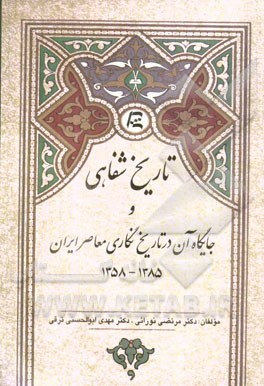 تاریخ شفاهی
و
جایگاه آن در تاریخ نگاری معاصر ایران
۱۳۸۵ - ۱۳۵۸
مؤلفان: دکتر مرتضی نورائی، دکتر مهدی ابوالحسنی ترقی
WWW.KETAB.IR